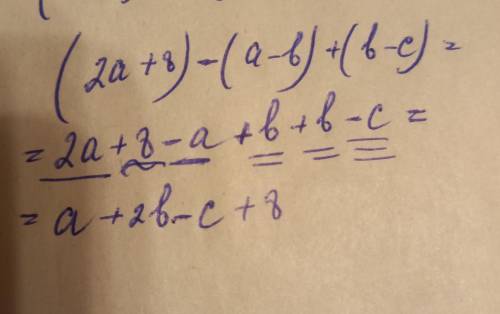 (2a+8)-(a-b)+(b-c)=
=2a+8-a+b+b-c=
=a+2b-c+8